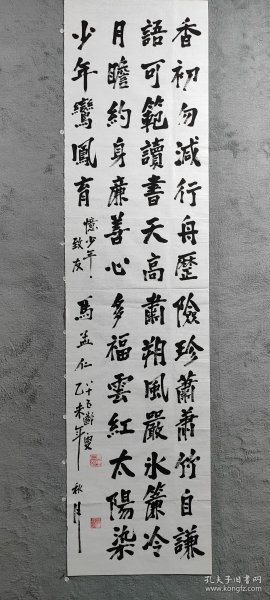 香初勿減行舟歷險珍蕭蕭竹自謙
語可範讀書天高肅朔風嚴冰簾冷
月瞻約身廉善心多福雲紅太陽染
少年鸞鳳育
憶少年·
致友
馬孟仁
八十五齡叟
乙未年 秋月
孔夫子旧书网